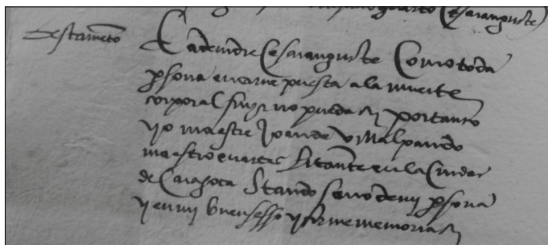 Cesarauguste
testamēto
Eadem die Cesarauguste Como toda
persona en carne puesta a la muerte
corporal fuyr no pueda portanto
yo maestre Joan de Villalpando
maestro en artes stante en la Ciudat
de Caragoça stando sano de mi persona
y en mi buen sesso y firme memoria